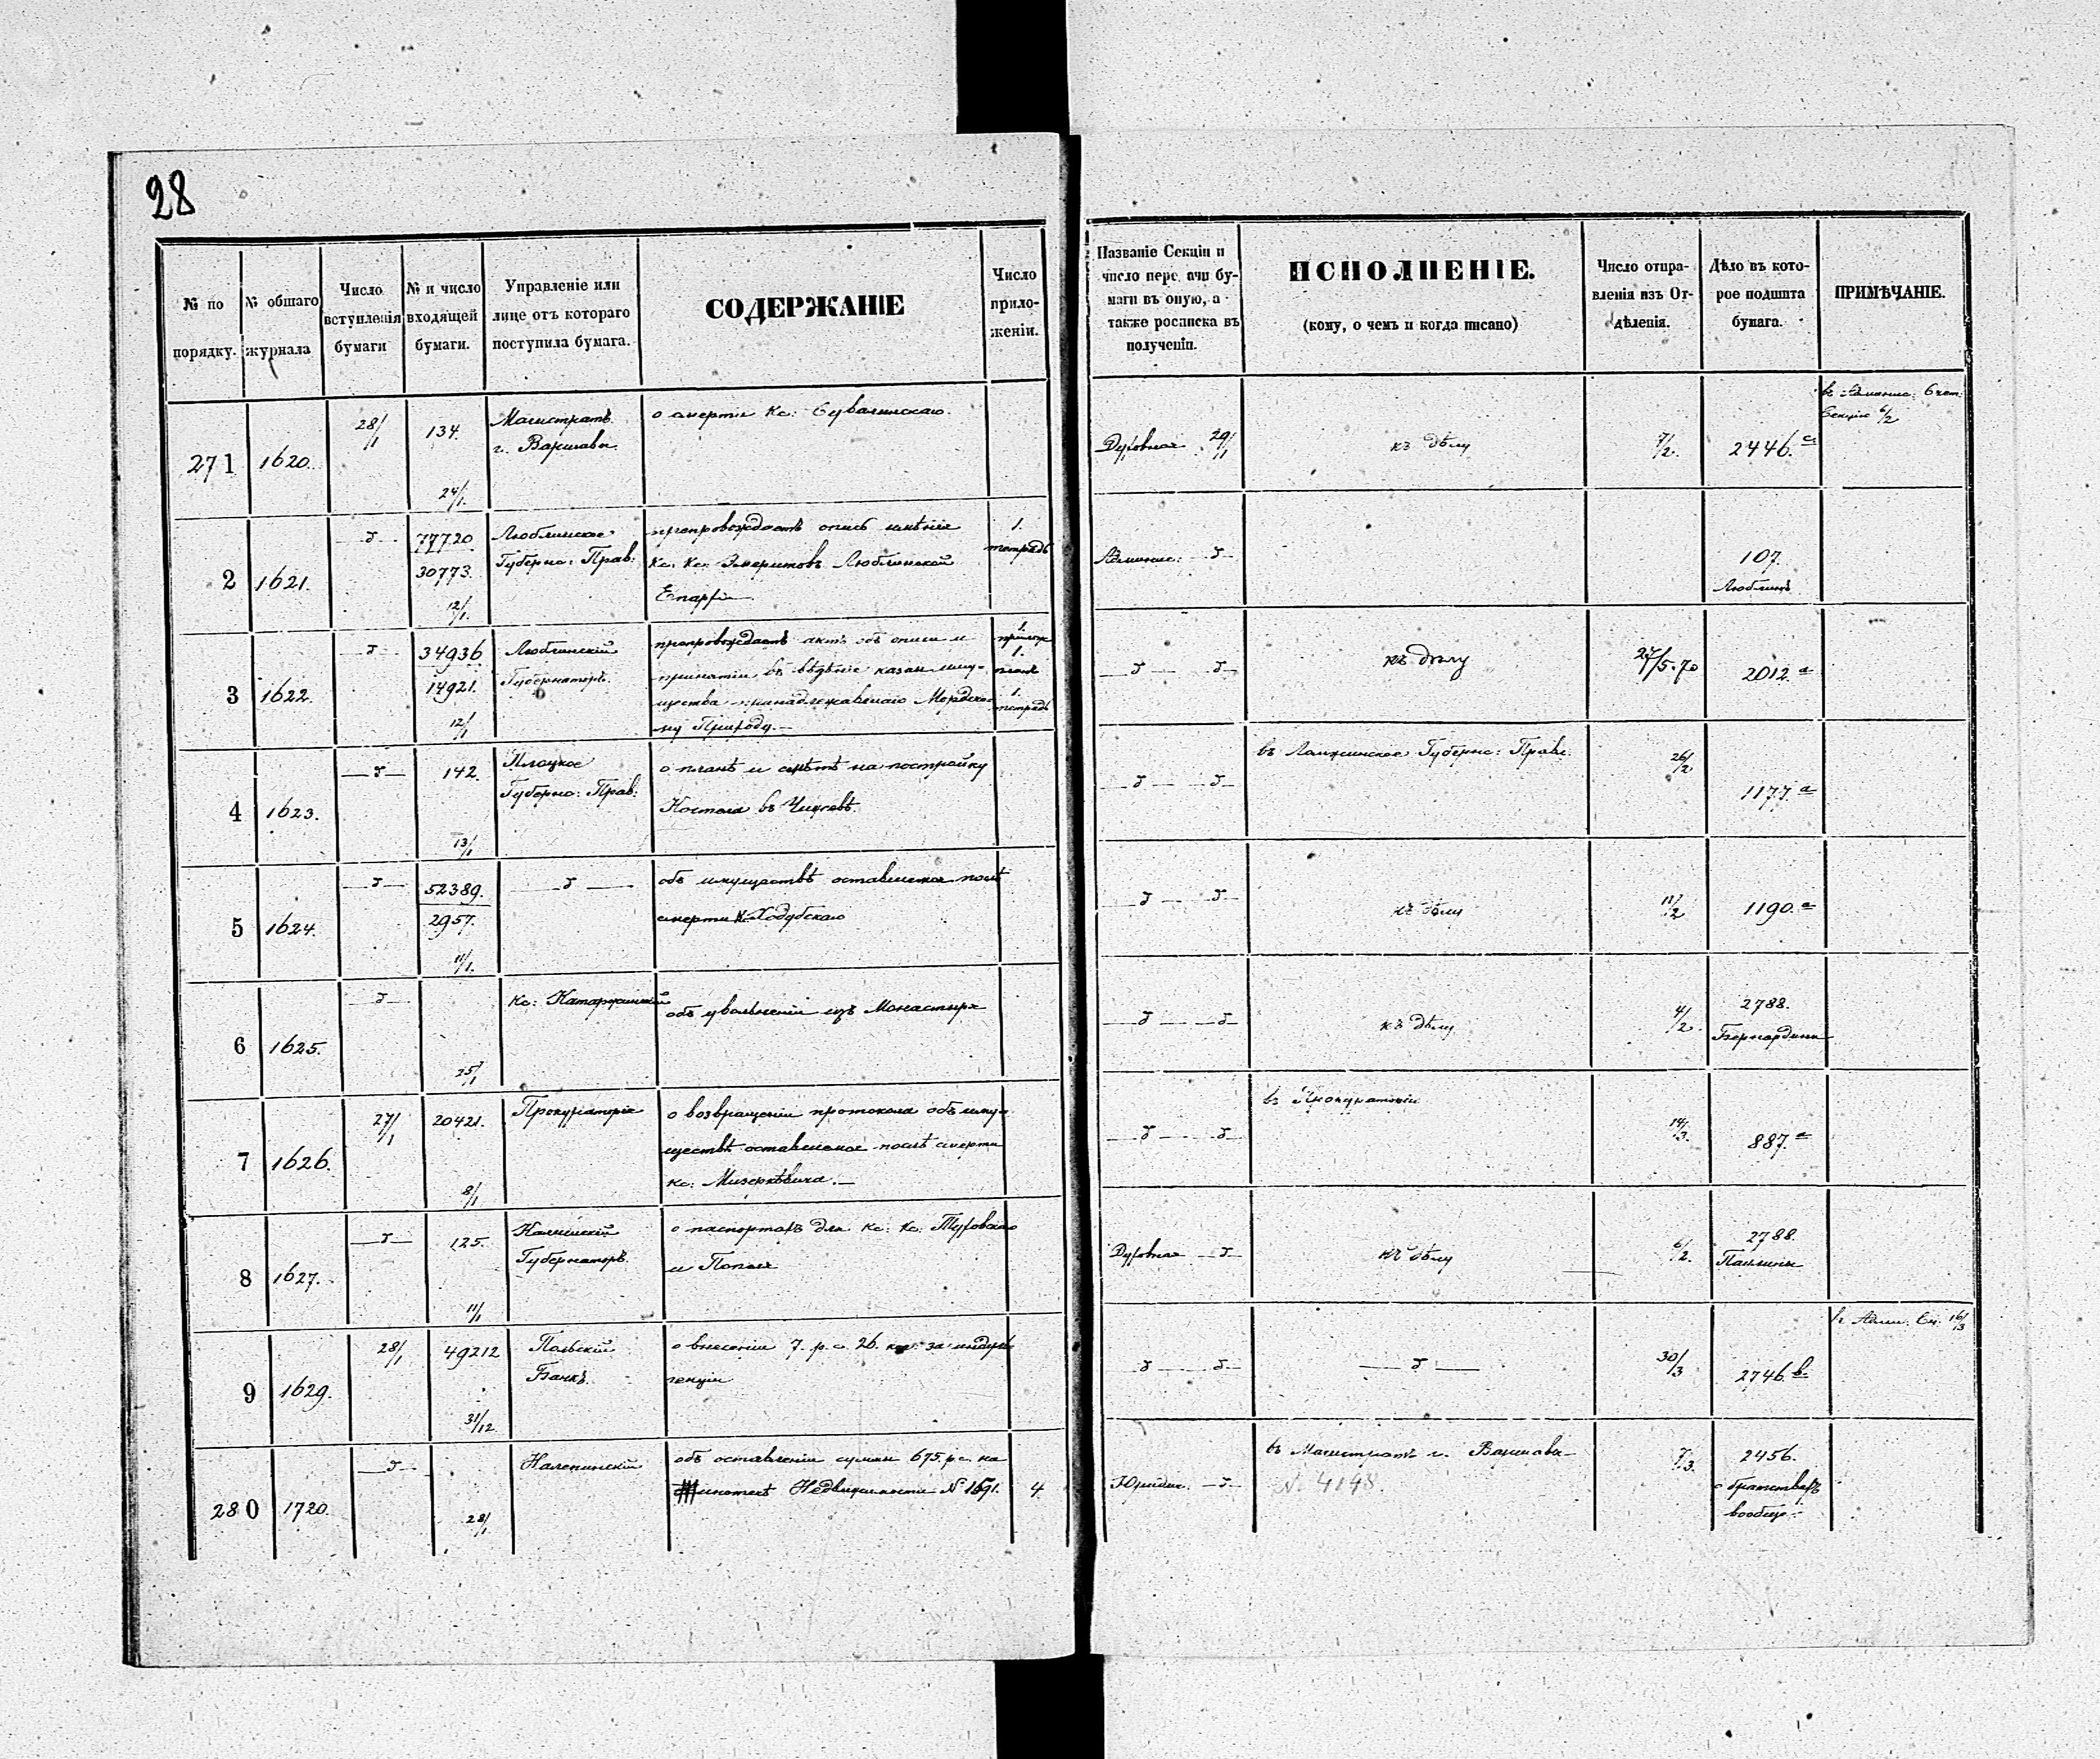 28
№ по порядку.
№ обшаго журнала
Число вступленія бумаги
№ и число входящей бумаги.
Управленіе или лице отъ котораго поступила бумага.
СОДЕРЖАНІЕ
Число прило-женіи.
Названіе Секціи и число пере ачи бу-маги въ оную, а также росписка въ полученіи.
ИСПОЛНЕНІЕ.
(кому, о чемъ и когда писано)
Число отпра-вленія изъ От-дѣленія.
Дѣло въ кото-рое подшита бумага.
ПРИМѢЧАНІЕ.
271 1620. 28/1 134. 24/1.
Магистратъ
г. Варшавы
о смерти Кс:
Духовная 29/1 къ дѣлу 7/2. 2446. а
Секцію 6/2
2 1621. 77720. 30773. 12/1.
Люблинское
Губернс: Прав:
препровождаетъ опись имѣнія
Кс. Кс. Эмеритовъ Люблинской
Епархіи
1.
тетрадь
107.
Люблинъ
3 1622. 34936 14921. 12/1
Люблинскій
Губернаторъ.
препровождаетъ актъ объ описи и
принятіи въ вѣдѣніе казны иму-
щества принадлежавшаго
му Приходу.
1.
1.
планъ
1.
тетрадь
къ дѣлу 27/5.70 2012. а
4 1623. 142. 13/1
Плоцкое
Губернс: Прав:
о планѣ и смѣтѣ на постройку
Костела въ
въ Ломжинское Губернс: Правл. 26/2 1177. а
5 1624. 52389. 2957. 11/1.
объ имуществѣ оставшемся послѣ
смерти К. Ходубскаго
къ дѣлу 11/2 1190. а
6 1625. 25/1
Кс:
объ увольненіи изъ Монастыря
къ дѣлу 4/2. 2788.
Бернардины
7 1626. 27/1 20421. 8/1
Прокураторія
о возвращеніи протокола объ иму-
ществѣ оставшемся послѣ смерти
Кс:
въ Прокураторіи 14/3. 887. а
8 1627. 125. 11/1
Калишскій
Губернаторъ.
о паспортахъ для Кс: Кс: Туровскаго
и
Духовная къ дѣлу 6/2. 2788.
Паулины
9 1629. 28/1 49212 31/12
Польскій
Банкъ.
о внесеніи 7. р. с. 26. коп. за индуль
генціи
30/3 2746. в.
16/3
280 1720. 28/1
объ оставленіи суммы 675. р. с. на
ипотекѣ Недвижимости № 1691. 4
Юридич. въ Магистратъ г. Варшавы
№ 4148. 7/3. 2456.
о братствахъ
вообще.